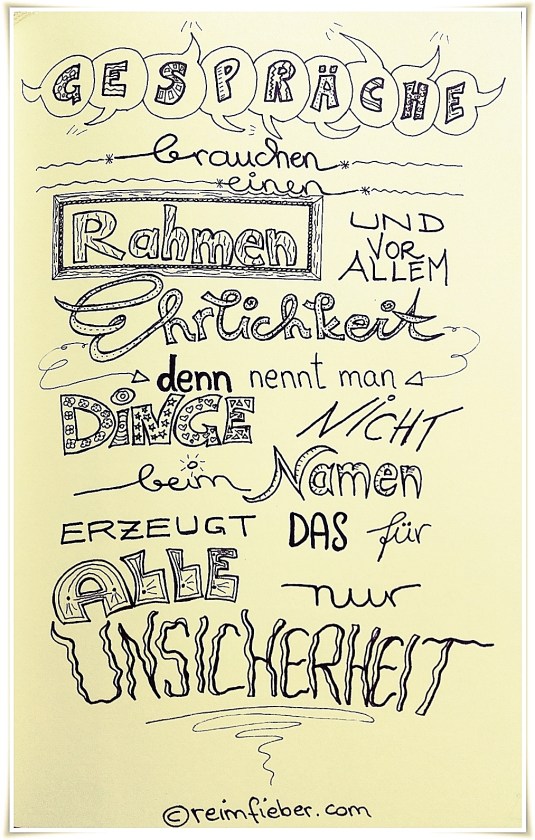 GESPRÄCHE
brauchen
einen
Rahmen UND VOR ALLEM
Ehrlichkeit
denn nennt man
DINGE NICHT
beim Namen
ERZEUGT DAS für
ALLE nur
UNSICHERHEIT
©reimfieber.com